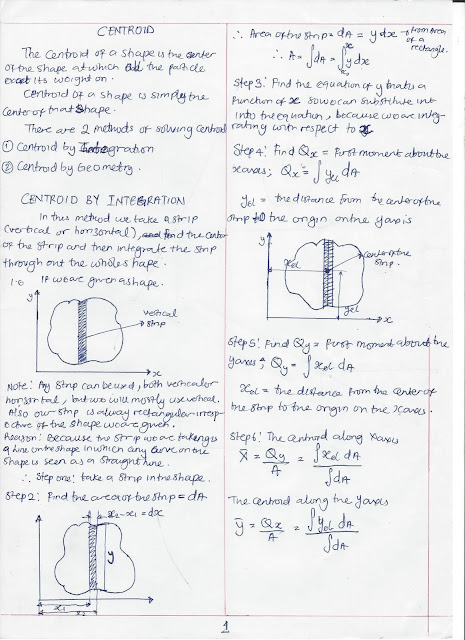 CENTROID
The Centroid of a shape is the center
of the shape at which all the particle
exert its weight on.
Centroid of a shape is simply the
Center of that shape.
There are 2 methods of solving Centroid
① Centroid by Integration
② Centroid by Geometry.
CENTROID BY INTEGRATION
In this method we take a strip
(vertical or horizontal), and find the center
of the strip and then integrate the strip
through out the whole shape.
i.e If we are given a shape.
y
vertical
strip
x
Note: Any strip can be used, both vertical or
horizontal, but we will mostly use vertical.
Also our strip is always rectangular irresp-
ective of the shape we are given.
Reason: Because the strip we are taking is
a line on the shape in which any curve on the
shape is seen as a straight line.
∴ Step one: take a strip in the shape.
Step 2: Find the area of the strip = dA
x₂-x₁ = dx
y
x₁
x₂
∴ Area of the strip = dA = y dx → from Area of a rectangle.
∴ A = ∫dA = ∫y dx
Step 3: Find the equation of y that is a
function of x so we can substitute int
into the equation, because we are integ-
rating with respect to x
Step 4: Find Qx = First moment about the
x axis; Qx = ∫yel dA
yel = the distance from the center of the
strip to the origin on the y axis
y
xel
center of the
strip.
yel
x
Step 5: Find Qy = First moment about the
y axis; Qy = ∫xel dA
xel = the distance from the center of
the strip to the origin on the x axis.
Step 6: The centroid along x axis
x̄ = Qy/A = ∫xel dA/∫dA
The centroid along the y axis
ȳ = Qx/A = ∫yel dA/∫dA
1